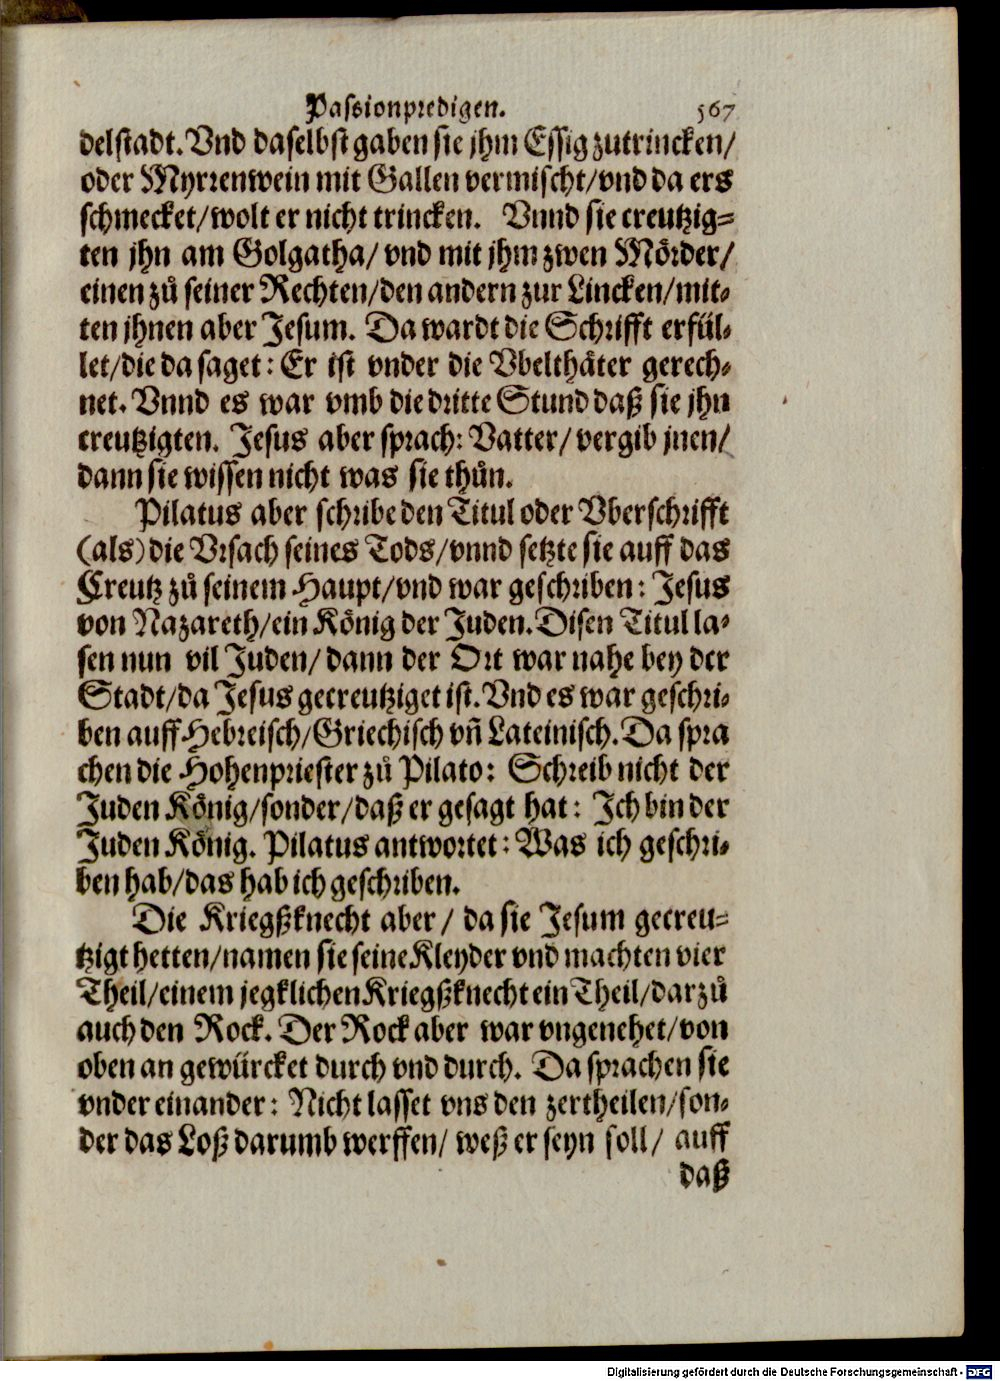 Passionpredigen. 567
delstadt. Vnd daselbst gaben sie jhm Essig zutrincken/
oder Myrrenwein mit Gallen vermischt/vnd da ers
schmecket/wolt er nicht trincken. Vnnd sie creutzig=
ten jhn am Golgatha/ vnd mit jhm zwen Mörder/
einen zů seiner Rechten/den andern zur Lincken/mit-
ten jhnen aber Jesum. Da wardt die Schrifft erfül-
let/die da saget: Er ist vnder die Vbelthäter gerech-
net. Vnnd es war vmb die dritte Stund daß sie jhn
creutzigten. Jesus aber sprach: Vatter/ vergib jnen/
dann sie wissen nicht was sie thůn.
Pilatus aber schribe den Titul oder Vberschrifft
(als) die Vrsach seines Tods/vnnd setzte sie auff das
Creutz zů seinem Haupt/vnd war geschriben: Jesus
von Nazareth/ein König der Juden. Disen Titul la-
sen nun vil Juden/ dann der Ort war nahe bey der
Stadt/da Jesus gecreutziget ist. Vnd es war geschri-
ben auff Hebreisch/Griechisch vn̄ Lateinisch. Da spra
chen die Hohenpriester zů Pilato: Schreib nicht der
Juden König/sonder/daß er gesagt hat: Ich bin der
Juden König. Pilatus antwortet: Was ich geschri-
ben hab/das hab ich geschriben.
Die Kriegßknecht aber/ da sie Jesum gecreu=
tzigt hetten/namen sie seine Kleyder vnd machten vier
Theil/einem jegklichen Kriegßknecht ein Theil/darzů
auch den Rock. Der Rock aber war vngenehet/von
oben an gewürcket durch vnd durch. Da sprachen sie
vnder einander: Nicht lasset vns den zertheilen/son-
der das Loß darumb werffen/ weß er seyn soll/ auff
daß
Digitalisierung gefördert durch die Deutsche Forschungsgemeinschaft - DFG